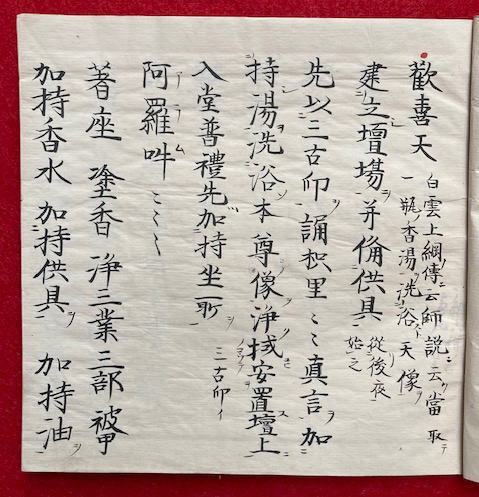 歡喜天 白雲上綱傳ニ云師説ニ云ク當取テ
一瓶香湯ヲ洗浴天像ヲ
建立壇場ヲ并備供具ヲ 從後夜
始之
先以三古印ヲ誦枳里〻〻真言ヲ加
持湯洗浴本尊像浄拭安置壇上ニ
入堂普禮先加持坐所ヲ 三古印
阿羅吽 〻〻〻
著座 塗香 浄三業 三部 被甲
加持香水 加持供具ヲ 加持油ヲ